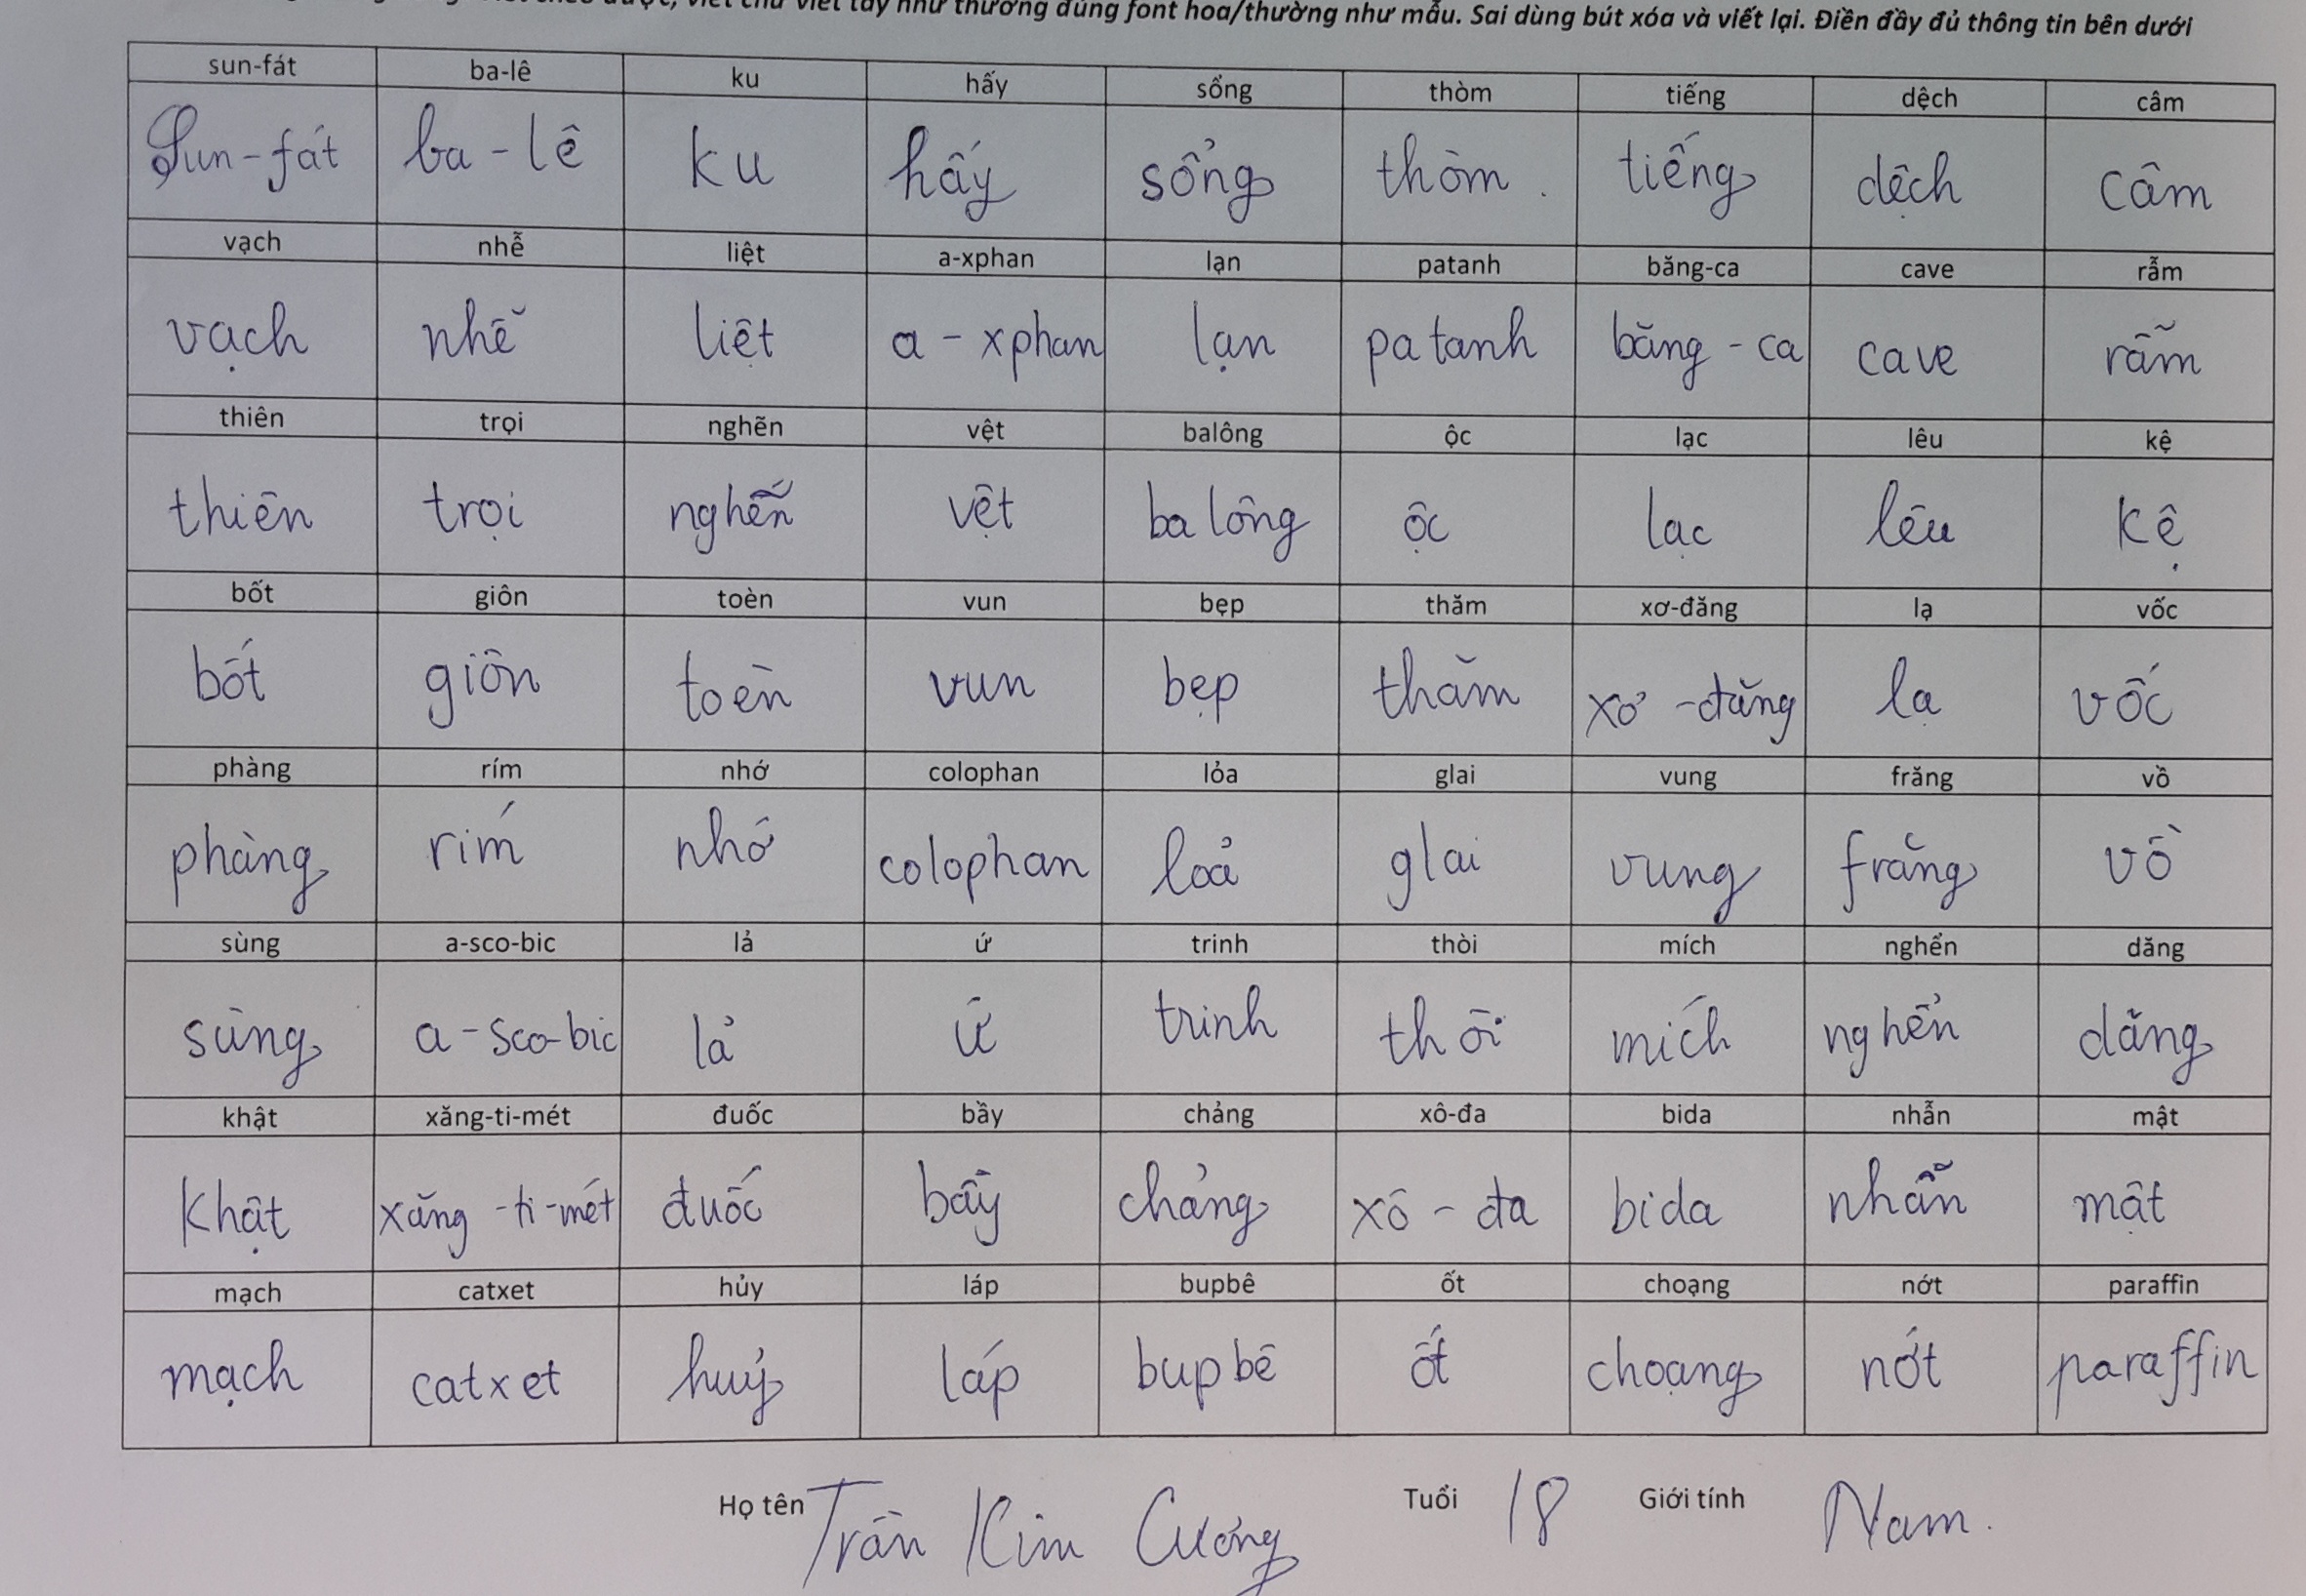 viết chữ viết tay như thường đúng font hoa/thường như mẫu. Sai dùng bút xóa và viết lại. Điền đầy đủ thông tin bên dưới
sun-fát ba-lê ku hấy sổng thòm tiếng dệch câm
Sun-fát ba-lê ku hấy sổng thòm. tiếng dệch câm
vạch nhễ liệt a-xphan lạn patanh băng-ca cave rẫm
vạch nhễ liệt a-xphan lạn patanh băng-ca cave rẫm
thiên trọi nghẽn vệt balông ộc lạc lêu kệ
thiên trọi nghẽn vệt balông ộc lạc lêu kệ
bốt giôn toèn vun bẹp thăm xơ-đăng lạ vốc
bốt giôn toèn vun bẹp thăm xơ-đăng lạ vốc
phàng rím nhớ colophan lỏa glai vung frăng vồ
phàng rím nhớ colophan loả glai vung frăng vồ
sùng a-sco-bic lả ứ trinh thòi mích nghển dăng
sùng a-sco-bic lả ứ trinh thòi mích nghển dăng
khật xăng-ti-mét đuốc bầy chảng xô-đa bida nhẫn mật
khật xăng-ti-mét đuốc bầy chảng xô-đa bida nhẫn mật
mạch catxet hủy láp bupbê ốt choạng nớt paraffin
mạch catxet huỷ láp bupbê ốt choạng nớt paraffin
Họ tên Trần Kim Cương Tuổi 18 Giới tính Nam.